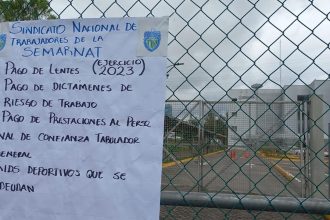 SINDICATO NACIONAL DE
TRABAJADORES DE LA
SEMARNAT
PAGO DE LENTES (EJERCICIO)
(2023)
PAGO DE DICTAMENES DE
RIESGO DE TRABAJO
PAGO DE PRESTACIONES AL PERSO
NAL DE CONFIANZA TABULADOR
GENERAL
DEPORTIVOS QUE SE
ADEUDAN